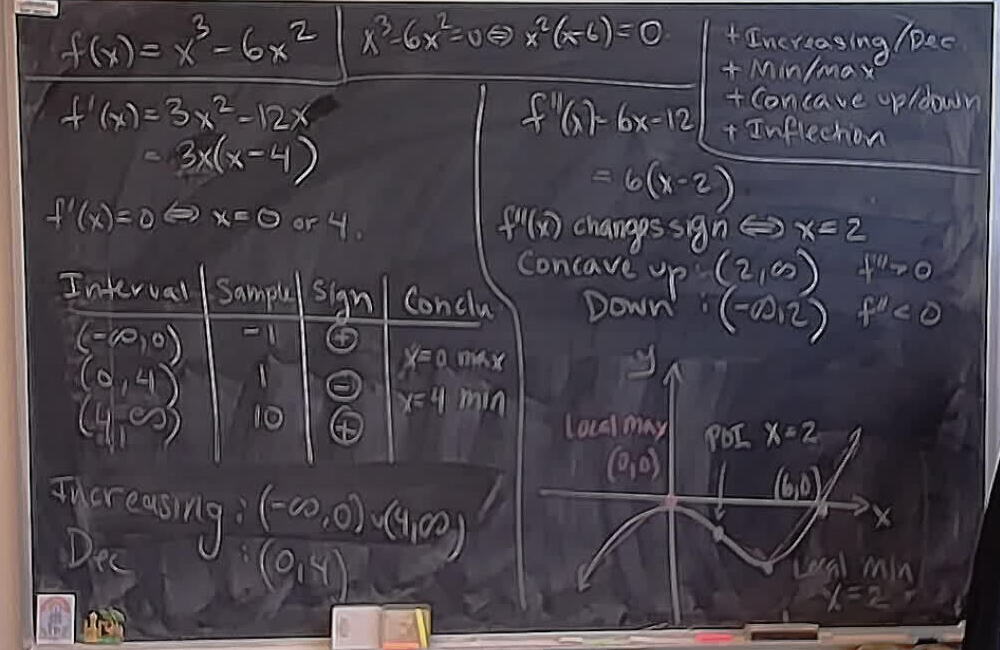 f(x) = x³ - 6x²
x³-6x²=0 ⇔ x²(x-6)=0
+ Increasing/Dec.
+ Min/max
+ Concave up/down
+ Inflection
f'(x) = 3x² - 12x
= 3x(x-4)
f'(x)=0 ⇔ x=0 or 4.
Interval | Sample | Sign | Conclu
(-∞,0) | -1 | +
x=0 max
(0,4) | 1 | -
x=4 min
(4,∞) | 10 | +
Increasing : (-∞,0)∪(4,∞)
Dec : (0,4)
f''(x) = 6x-12
= 6(x-2)
f''(x) changes sign ⇔ x=2
Concave up : (2,∞) f''>0
Down : (-∞,2) f''<0
y
Local max
(0,0)
POI x=2
(6,0)
x
Local min
x=2